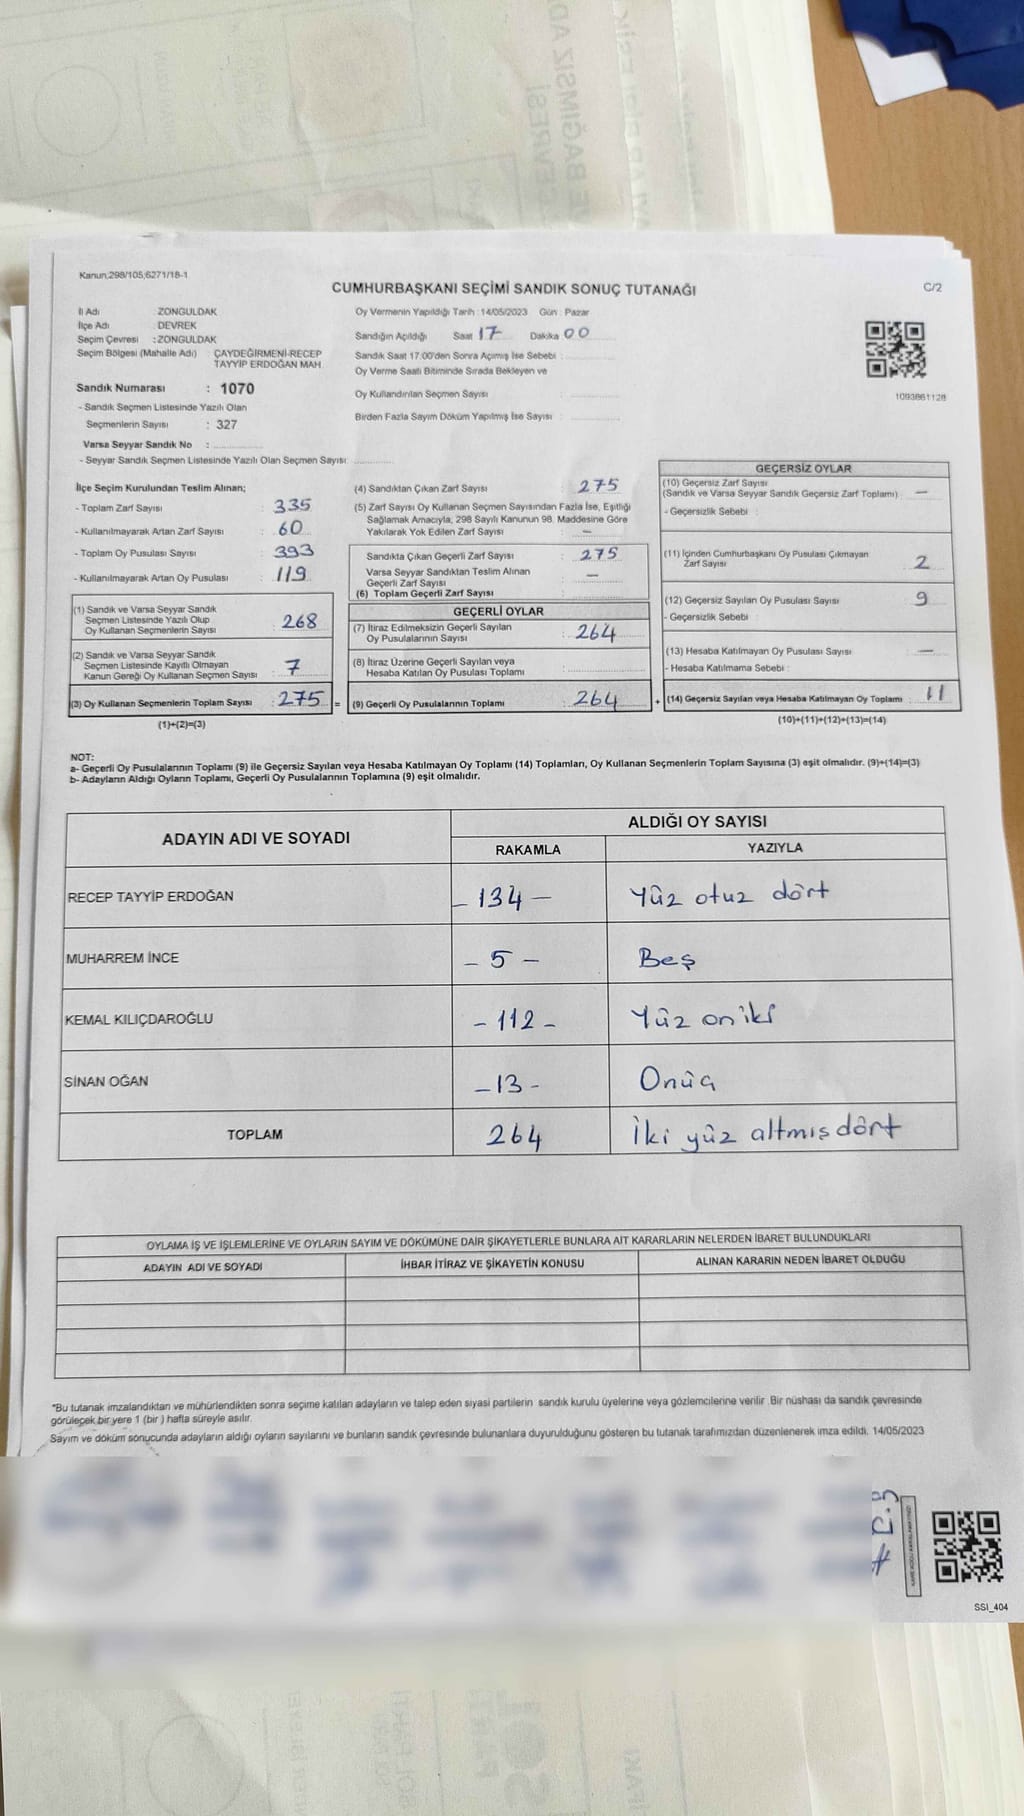 Kanun;298/105;6271/18-1
CUMHURBAŞKANI SEÇİMİ SANDIK SONUÇ TUTANAĞI
C/2
İl Adı : ZONGULDAK
İlçe Adı : DEVREK
Seçim Çevresi : ZONGULDAK
Seçim Bölgesi (Mahalle Adı) : ÇAYDEĞİRMENİ-RECEP
TAYYİP ERDOĞAN MAH.
Sandık Numarası : 1070
- Sandık Seçmen Listesinde Yazılı Olan
Seçmenlerin Sayısı : 327
Varsa Seyyar Sandık No :
- Seyyar Sandık Seçmen Listesinde Yazılı Olan Seçmen Sayısı:
Oy Vermenin Yapıldığı Tarih : 14/05/2023 Gün : Pazar
Sandığın Açıldığı Saat 17 Dakika 00
Sandık Saat 17.00'den Sonra Açımış İse Sebebi :
Oy Verme Saati Bitiminde Sırada Bekleyen ve
Oy Kullandırılan Seçmen Sayısı :
Birden Fazla Sayım Döküm Yapılmış İse Sayısı :
1093861128
İlçe Seçim Kurulundan Teslim Alınan;
- Toplam Zarf Sayısı : 335
- Kullanılmayarak Artan Zarf Sayısı : 60
- Toplam Oy Pusulası Sayısı : 393
- Kullanılmayarak Artan Oy Pusulası : 119
(1) Sandık ve Varsa Seyyar Sandık
Seçmen Listesinde Yazılı Olup
Oy Kullanan Seçmenlerin Sayısı : 268
(2) Sandık ve Varsa Seyyar Sandık
Seçmen Listesinde Kayıtlı Olmayan
Kanun Gereği Oy Kullanan Seçmen Sayısı : 7
(3) Oy Kullanan Seçmenlerin Toplam Sayısı : 275 =
(1)+(2)=(3)
(4) Sandıktan Çıkan Zarf Sayısı : 275
(5) Zarf Sayısı Oy Kullanan Seçmen Sayısından Fazla İse, Eşitliği
Sağlamak Amacıyla, 298 Sayılı Kanunun 98. Maddesine Göre
Yakılarak Yok Edilen Zarf Sayısı : —
Sandıkta Çıkan Geçerli Zarf Sayısı : 275
Varsa Seyyar Sandıktan Teslim Alınan
Geçerli Zarf Sayısı : —
(6) Toplam Geçerli Zarf Sayısı :
GEÇERLİ OYLAR
(7) İtiraz Edilmeksizin Geçerli Sayılan
Oy Pusulalarının Sayısı : 264
(8) İtiraz Üzerine Geçerli Sayılan veya
Hesaba Katılan Oy Pusulası Toplamı :
(9) Geçerli Oy Pusulalarının Toplamı : 264 +
GEÇERSİZ OYLAR
(10) Geçersiz Zarf Sayısı
(Sandık ve Varsa Seyyar Sandık Geçersiz Zarf Toplamı) : —
- Geçersizlik Sebebi :
(11) İçinden Cumhurbaşkanı Oy Pusulası Çıkmayan
Zarf Sayısı : 2
(12) Geçersiz Sayılan Oy Pusulası Sayısı : 9
- Geçersizlik Sebebi :
(13) Hesaba Katılmayan Oy Pusulası Sayısı : —
- Hesaba Katılmama Sebebi :
(14) Geçersiz Sayılan veya Hesaba Katılmayan Oy Toplamı : 11
(10)+(11)+(12)+(13)=(14)
NOT:
a- Geçerli Oy Pusulalarının Toplamı (9) ile Geçersiz Sayılan veya Hesaba Katılmayan Oy Toplamı (14) Toplamları, Oy Kullanan Seçmenlerin Toplam Sayısına (3) eşit olmalıdır. (9)+(14)=(3)
b- Adayların Aldığı Oyların Toplamı, Geçerli Oy Pusulalarının Toplamına (9) eşit olmalıdır.
ADAYIN ADI VE SOYADI
ALDIĞI OY SAYISI
RAKAMLA YAZIYLA
RECEP TAYYİP ERDOĞAN – 134 – Yüz otuz dört
MUHARREM İNCE – 5 – Beş
KEMAL KILIÇDAROĞLU – 112 – Yüz oniki
SİNAN OĞAN – 13 – Onüç
TOPLAM 264 İki yüz altmış dört
OYLAMA İŞ VE İŞLEMLERİNE VE OYLARIN SAYIM VE DÖKÜMÜNE DAİR ŞİKAYETLERLE BUNLARA AİT KARARLARIN NELERDEN İBARET BULUNDUKLARI
ADAYIN ADI VE SOYADI İHBAR İTİRAZ VE ŞİKAYETİN KONUSU ALINAN KARARIN NEDEN İBARET OLDUĞU
"Bu tutanak imzalandıktan ve mühürlendikten sonra seçime katılan adayların ve talep eden siyasi partilerin sandık kurulu üyelerine veya gözlemcilerine verilir. Bir nüshası da sandık çevresinde
görülecek bir yere 1 (bir ) hafta süreyle asılır.
Sayım ve döküm sonucunda adayların aldığı oyların sayılarını ve bunların sandık çevresinde bulunanlara duyurulduğunu gösteren bu tutanak tarafımızdan düzenlenerek imza edildi. 14/05/2023
SSİ_404